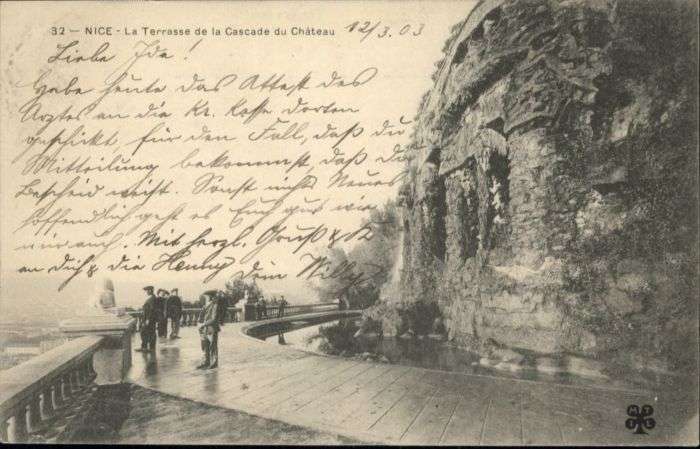 32 — NICE - La Terrasse de la Cascade du Château 12/3. 03
Liebe Ida!
Habe heute das Attest des
Arztes an die Kr. Kasse dorten
geschickt, für den Fall, daß du
Mitteilung bekommst, daß du
Bescheid weißt. Sonst nichts Neues
hoffentlich geht es Euch gut wie
mir auch. Mit herzl. Gruß & K
an dich & die Henny dein Willy
MTIL